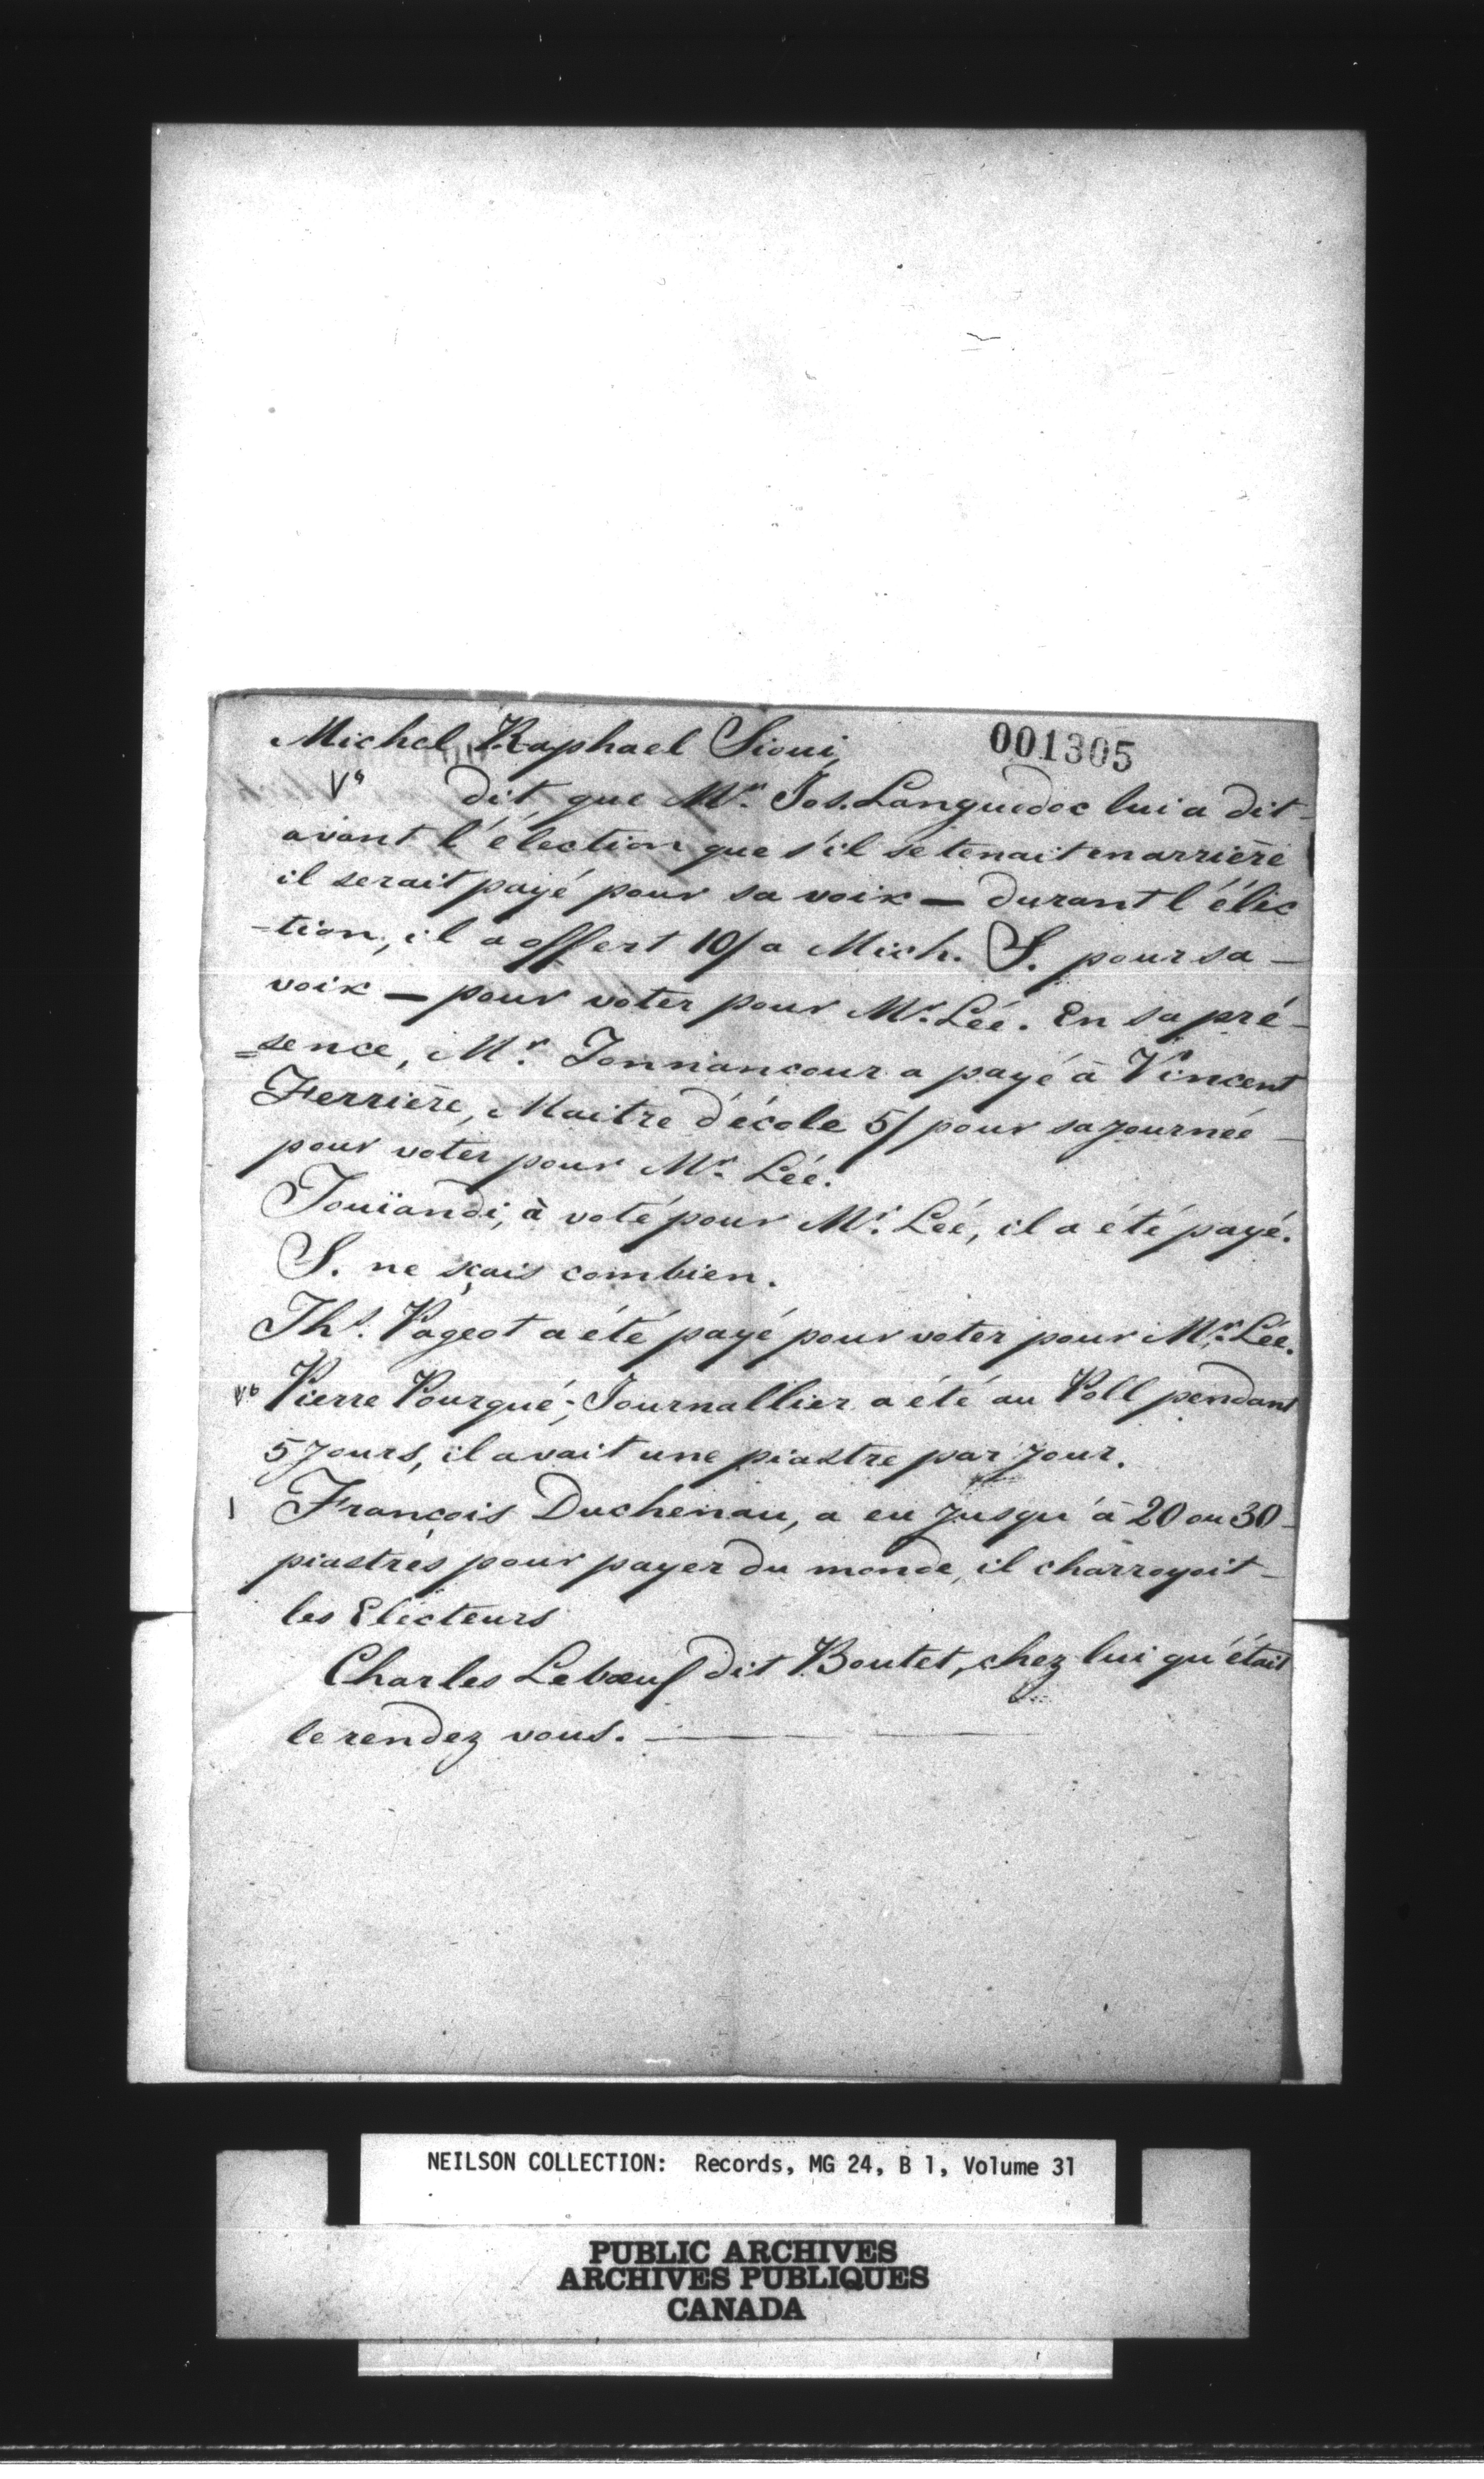 Michel Raphael Sioui,
001305
Vo dit que Mr. Jos. Languedoc lui a dit
avant l'élection que s'il se tenait en arrière
il serait payé pour sa voix — durant l'élec
-tion, il a offert 10/ a Mich. S. pour sa —
voix — pour voter pour Mr. Léé. En sa pré-
=sence, Mr. Tonnancour a payé à Vincent
Ferrière, Maitre d'école 5/ pour sa journée —
pour voter pour Mr. Léé.
Touïandi, à voté pour Mr. Léé, il a été payé.
S. ne sçais combien.
Ths. Pageot a été payé pour voter pour Mr. Lée.
Vo Pierre Pourqué; Journallier a été au Poll pendant
5 Jours, il avait une piastre par jour.
François Duchenau, a eu jusqu'à 20 ou 30 —
piastres pour payer du monde, il charroyoit —
les Electeurs
Charles Lebœuf dit Boutet, chez lui qu'était
le rendez vous. —
NEILSON COLLECTION: Records, MG 24, B 1, Volume 31
PUBLIC ARCHIVES
ARCHIVES PUBLIQUES
CANADA